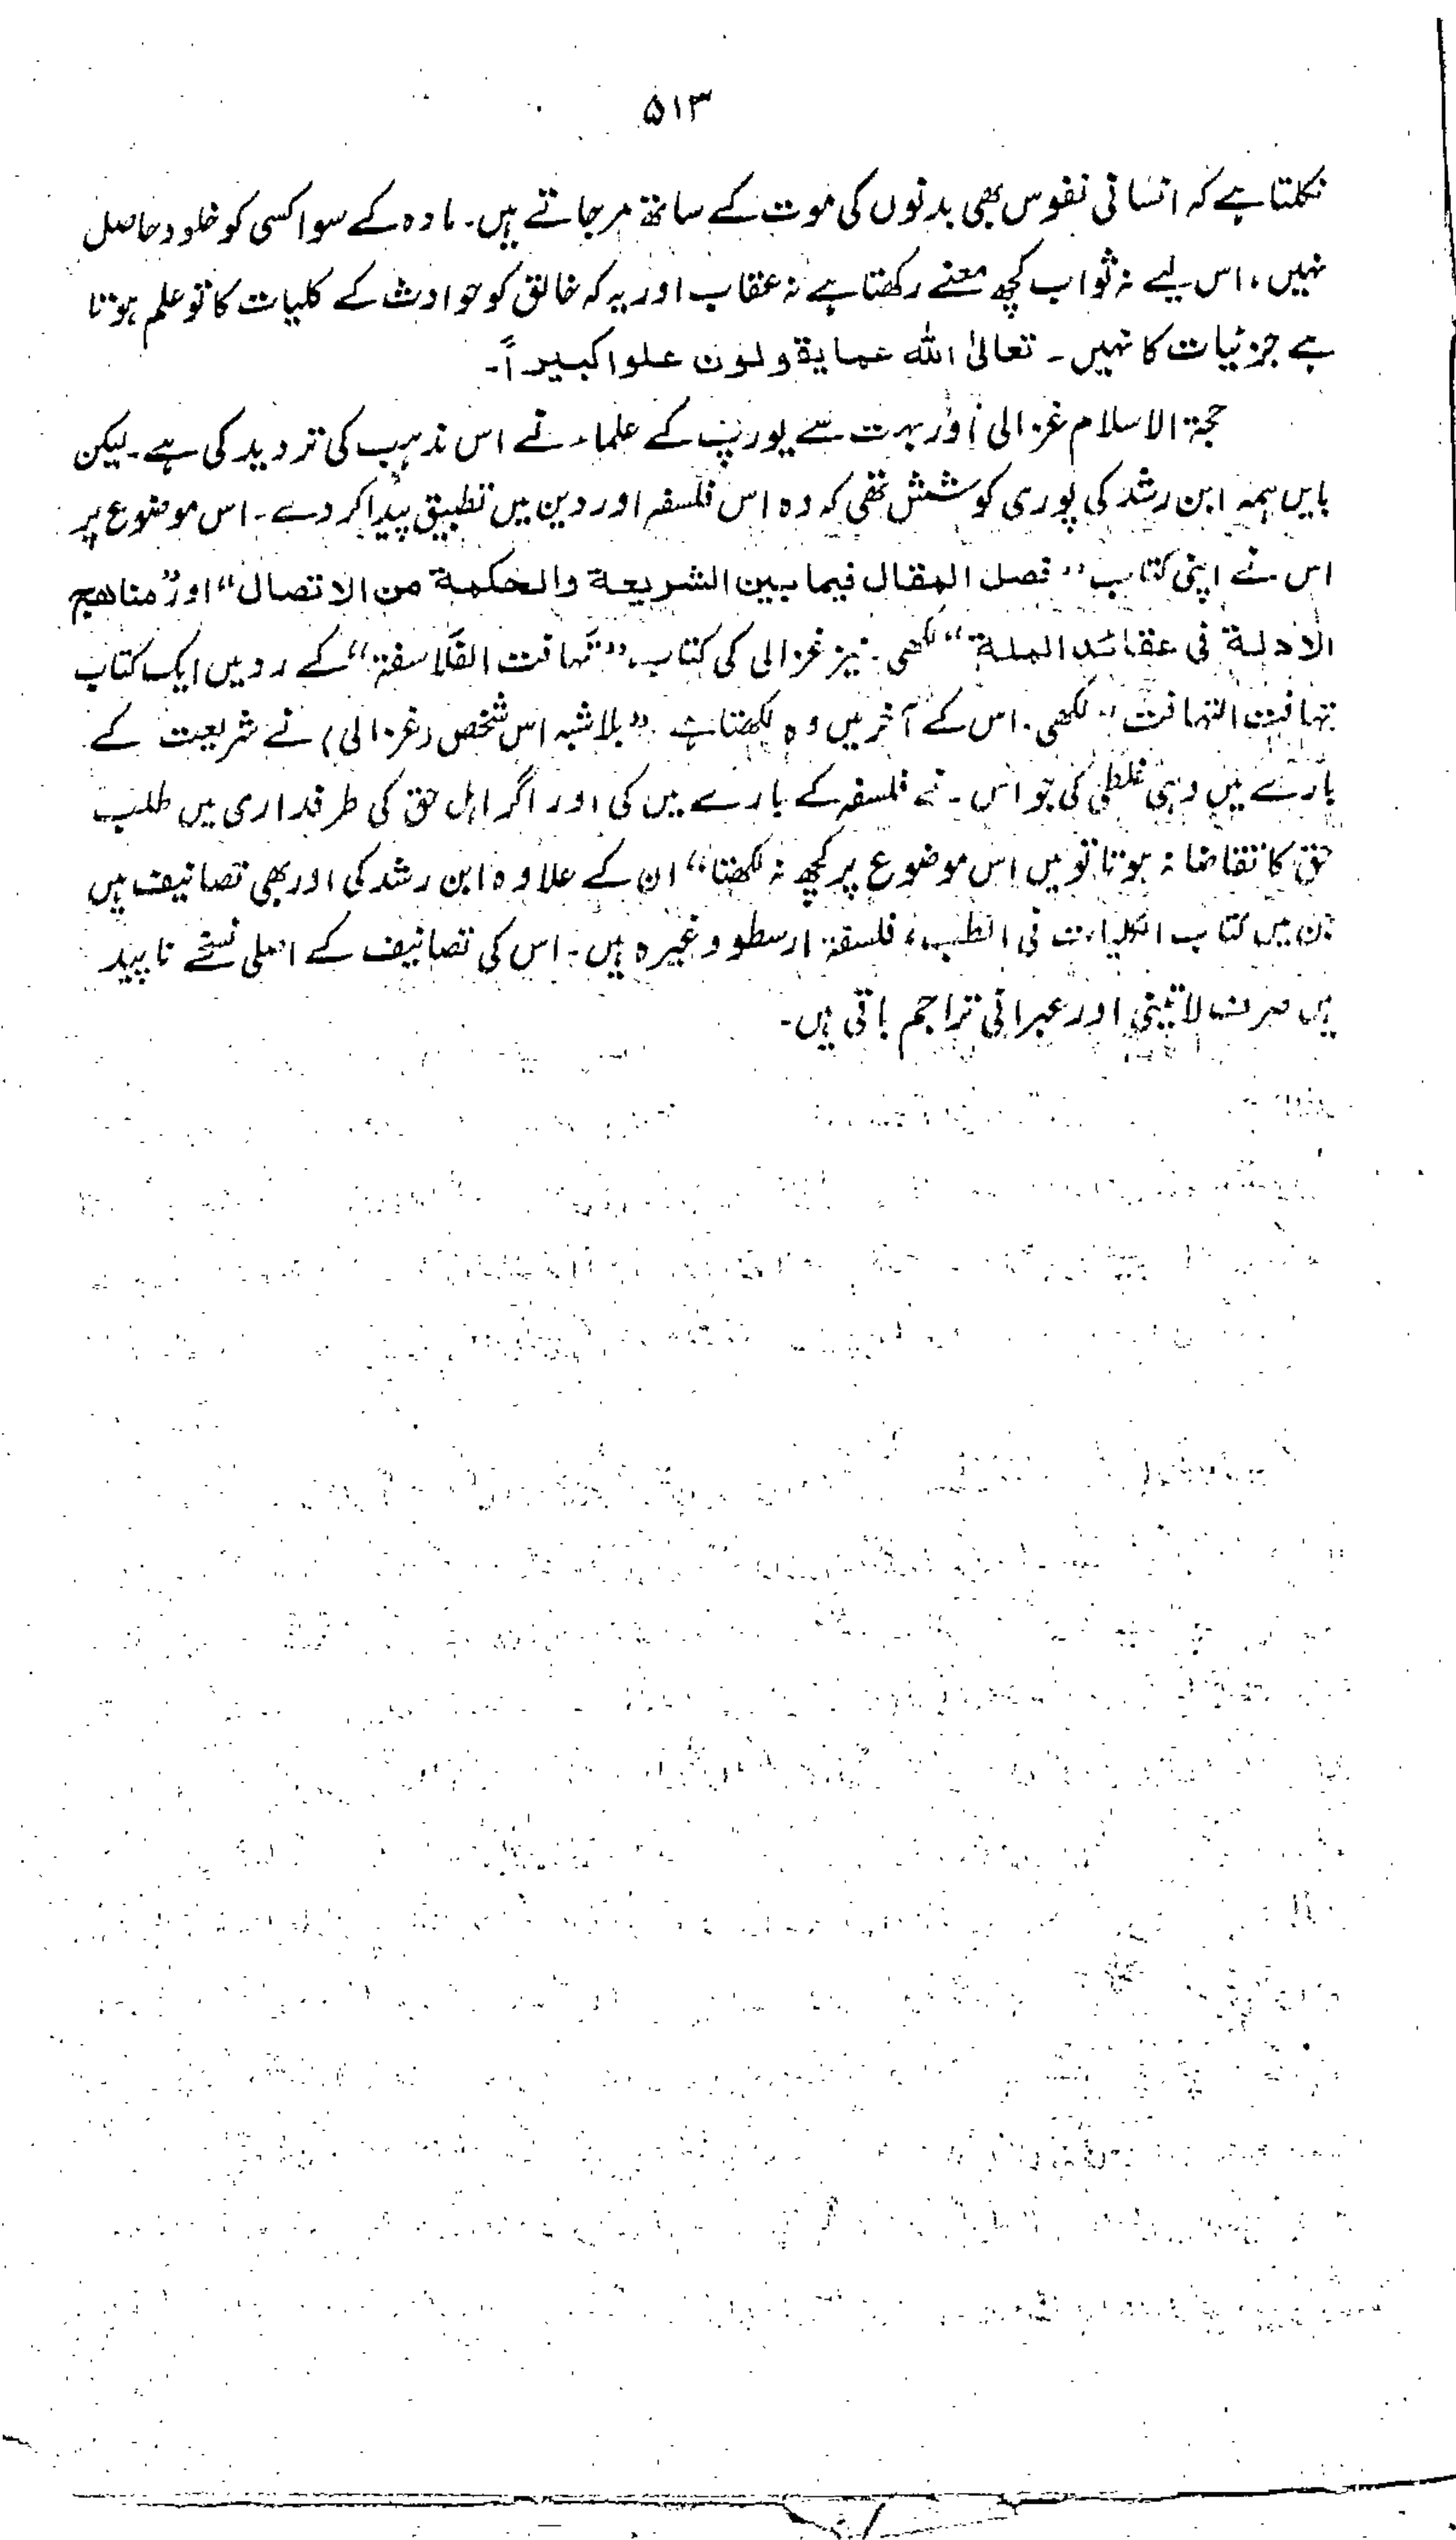 ۵۱۳
نکلتا ہے کہ انسانی نفوس بھی بدنوں کی موت کے ساتھ مر جاتے ہیں۔ مادہ کے سوا کسی کو خلود حاصل
نہیں، اس لیے نہ ثواب کچھ معنے رکھتا ہے نہ عقاب اور یہ کہ خالق کو حوادث کے کلیات کا تو علم ہوتا
ہے جزئیات کا نہیں۔ تعالیٰ اللہ عما یقولون علوا کبیراً۔
حجۃ الاسلام غزالی اور بہت سے یورپ کے علماء نے اس مذہب کی تردید کی ہے۔ لیکن
بایں ہمہ ابن رشد کی پوری کوشش تھی کہ وہ اس فلسفہ اور دین میں تطبیق پیدا کر دے۔ اس موضوع پر
اس نے اپنی کتاب ”فصل المقال فیما بین الشریعة والحکمة من الاتصال“ اور ”مناھج
الادلة فی عقائد الملة“ لکھی۔ نیز غزالی کی کتاب ”تہافت الفلاسفۃ“ کے رد میں ایک کتاب
تہافت التہافت“ لکھی۔ اس کے آخر میں وہ لکھتا ہے ”بلاشبہ اس شخص (غزالی) نے شریعت کے
بارے میں وہی غلطی کی جو اس نے فلسفہ کے بارے میں کی اور اگر اہل حق کی طرفداری میں طلب
حق کا تقاضا نہ ہوتا تو میں اس موضوع پر کچھ نہ لکھتا“ ان کے علاوہ ابن رشد کی اور بھی تصانیف ہیں
جن میں کتاب الکلیات فی الطب، فلسفۃ ارسطو وغیرہ ہیں۔ اس کی تصانیف کے اصلی نسخے ناپید
ہیں صرف لاتینی اور عبرانی تراجم باقی ہیں۔